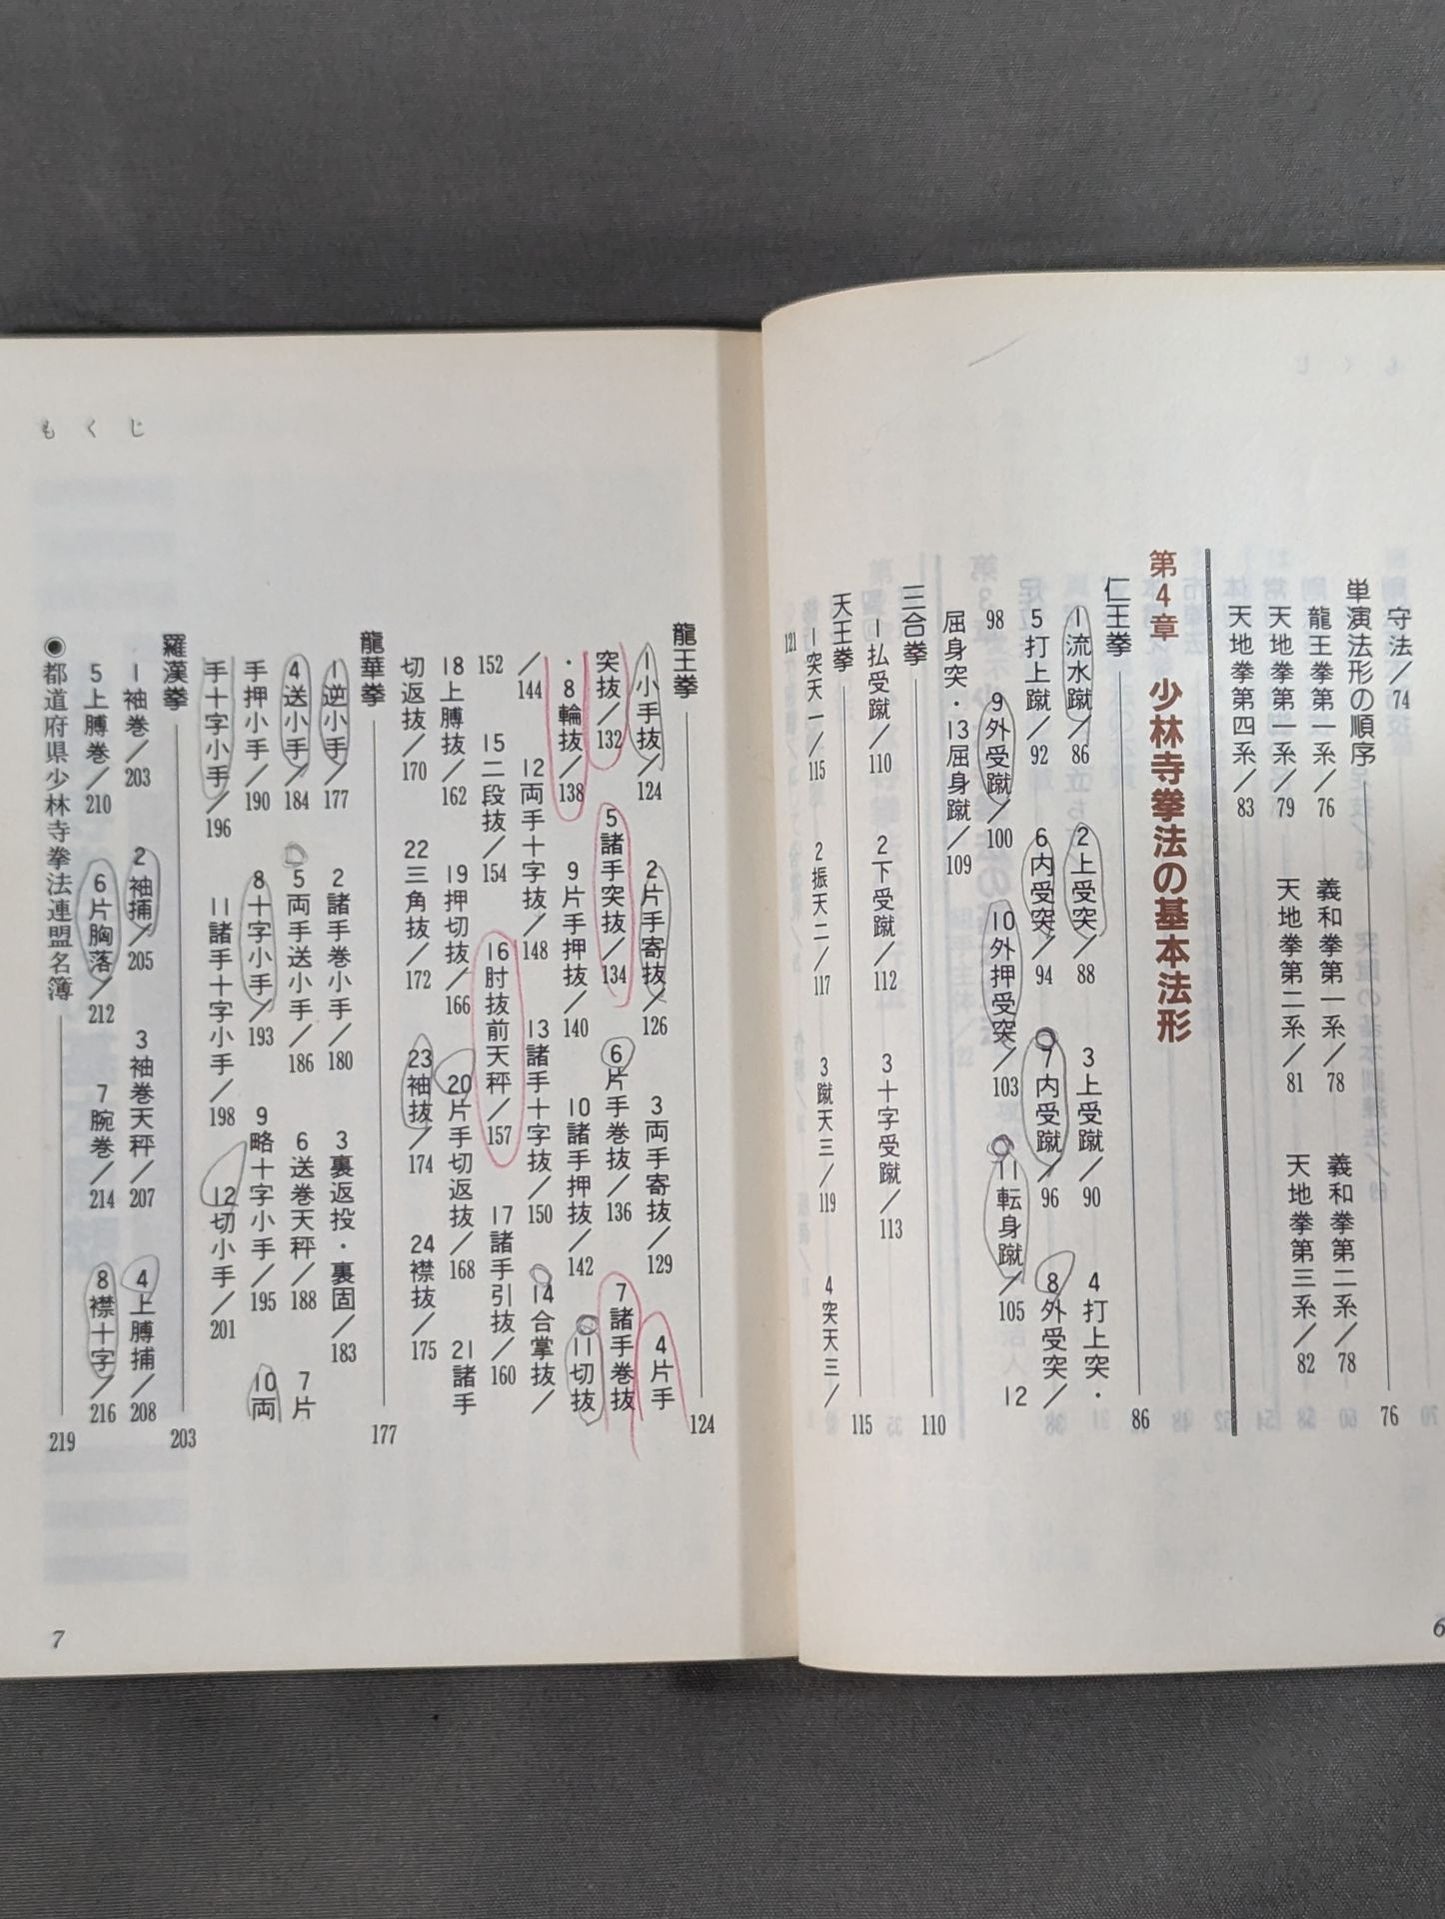 守法／74
単演法形の順序 76
龍王拳第一系／76 義和拳第一系／78 義和拳第二系／78
天地拳第一系／79 天地拳第二系／81 天地拳第三系／82
天地拳第四系／83
第4章 少林寺拳法の基本法形
仁王拳 86
1流水蹴／86 2上受突／88 3上受蹴／90 4打上突・
5打上蹴／92 6内受突／94 7内受蹴／96 8外受突／
98 9外受蹴／100 10外押受突／103 11転身蹴／105 12
屈身突・13屈身蹴／109
三合拳 110
1払受蹴／110 2下受蹴／112 3十字受蹴／113
天王拳 115
1突天一／115 2振天二／117 3蹴天三／119 4突天三／
121
6
龍王拳 124
1小手抜／124 2片手寄抜／126 3両手寄抜／129 4片手
突抜／132 5諸手突抜／134 6片手巻抜／136 7諸手巻抜
・8輪抜／138 9片手押抜／140 10諸手押抜／142 11切抜
／144 12両手十字抜／148 13諸手十字抜／150 14合掌抜／
152 15二段抜／154 16肘抜前天秤／157 17諸手引抜／160
18上膊抜／162 19押切抜／166 20片手切返抜／168 21諸手
切返抜／170 22三角抜／172 23袖抜／174 24襟抜／175
龍華拳 177
1逆小手／177 2諸手巻小手／180 3裏返投・裏固／183
4送小手／184 5両手送小手／186 6送巻天秤／188 7片
手押小手／190 8十字小手／193 9略十字小手／195 10両
手十字小手／196 11諸手十字小手／198 12切小手／201
羅漢拳 203
1袖巻／203 2袖捕／205 3袖巻天秤／207 4上膊捕／208
5上膊巻／210 6片胸落／212 7腕巻／214 8襟十字／216
◉都道府県少林寺拳法連盟名簿 219
もくじ
7